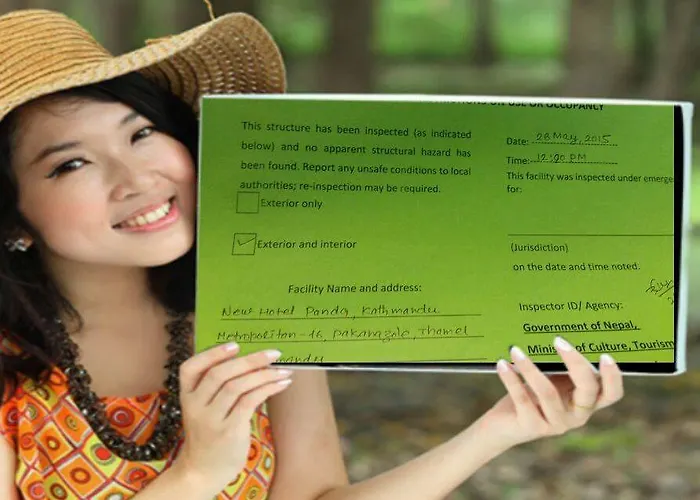 ON USE OR OCCUPANCY
This structure has been inspected (as indicated
below) and no apparent structural hazard has
been found. Report any unsafe conditions to local
authorities; re-inspection may be required.
Exterior only
Exterior and interior
Facility Name and address:
New Hotel Panda, Kathmandu
Metropolitan-16, Pakanajole, Thamel
mandu
Date: 28 May, 2015
Time: 12:20 PM
This facility was inspected under emerge
for:
(Jurisdiction)
on the date and time noted.
Inspector ID/ Agency:
Government of Nepal,
Minis of Culture, Tourism